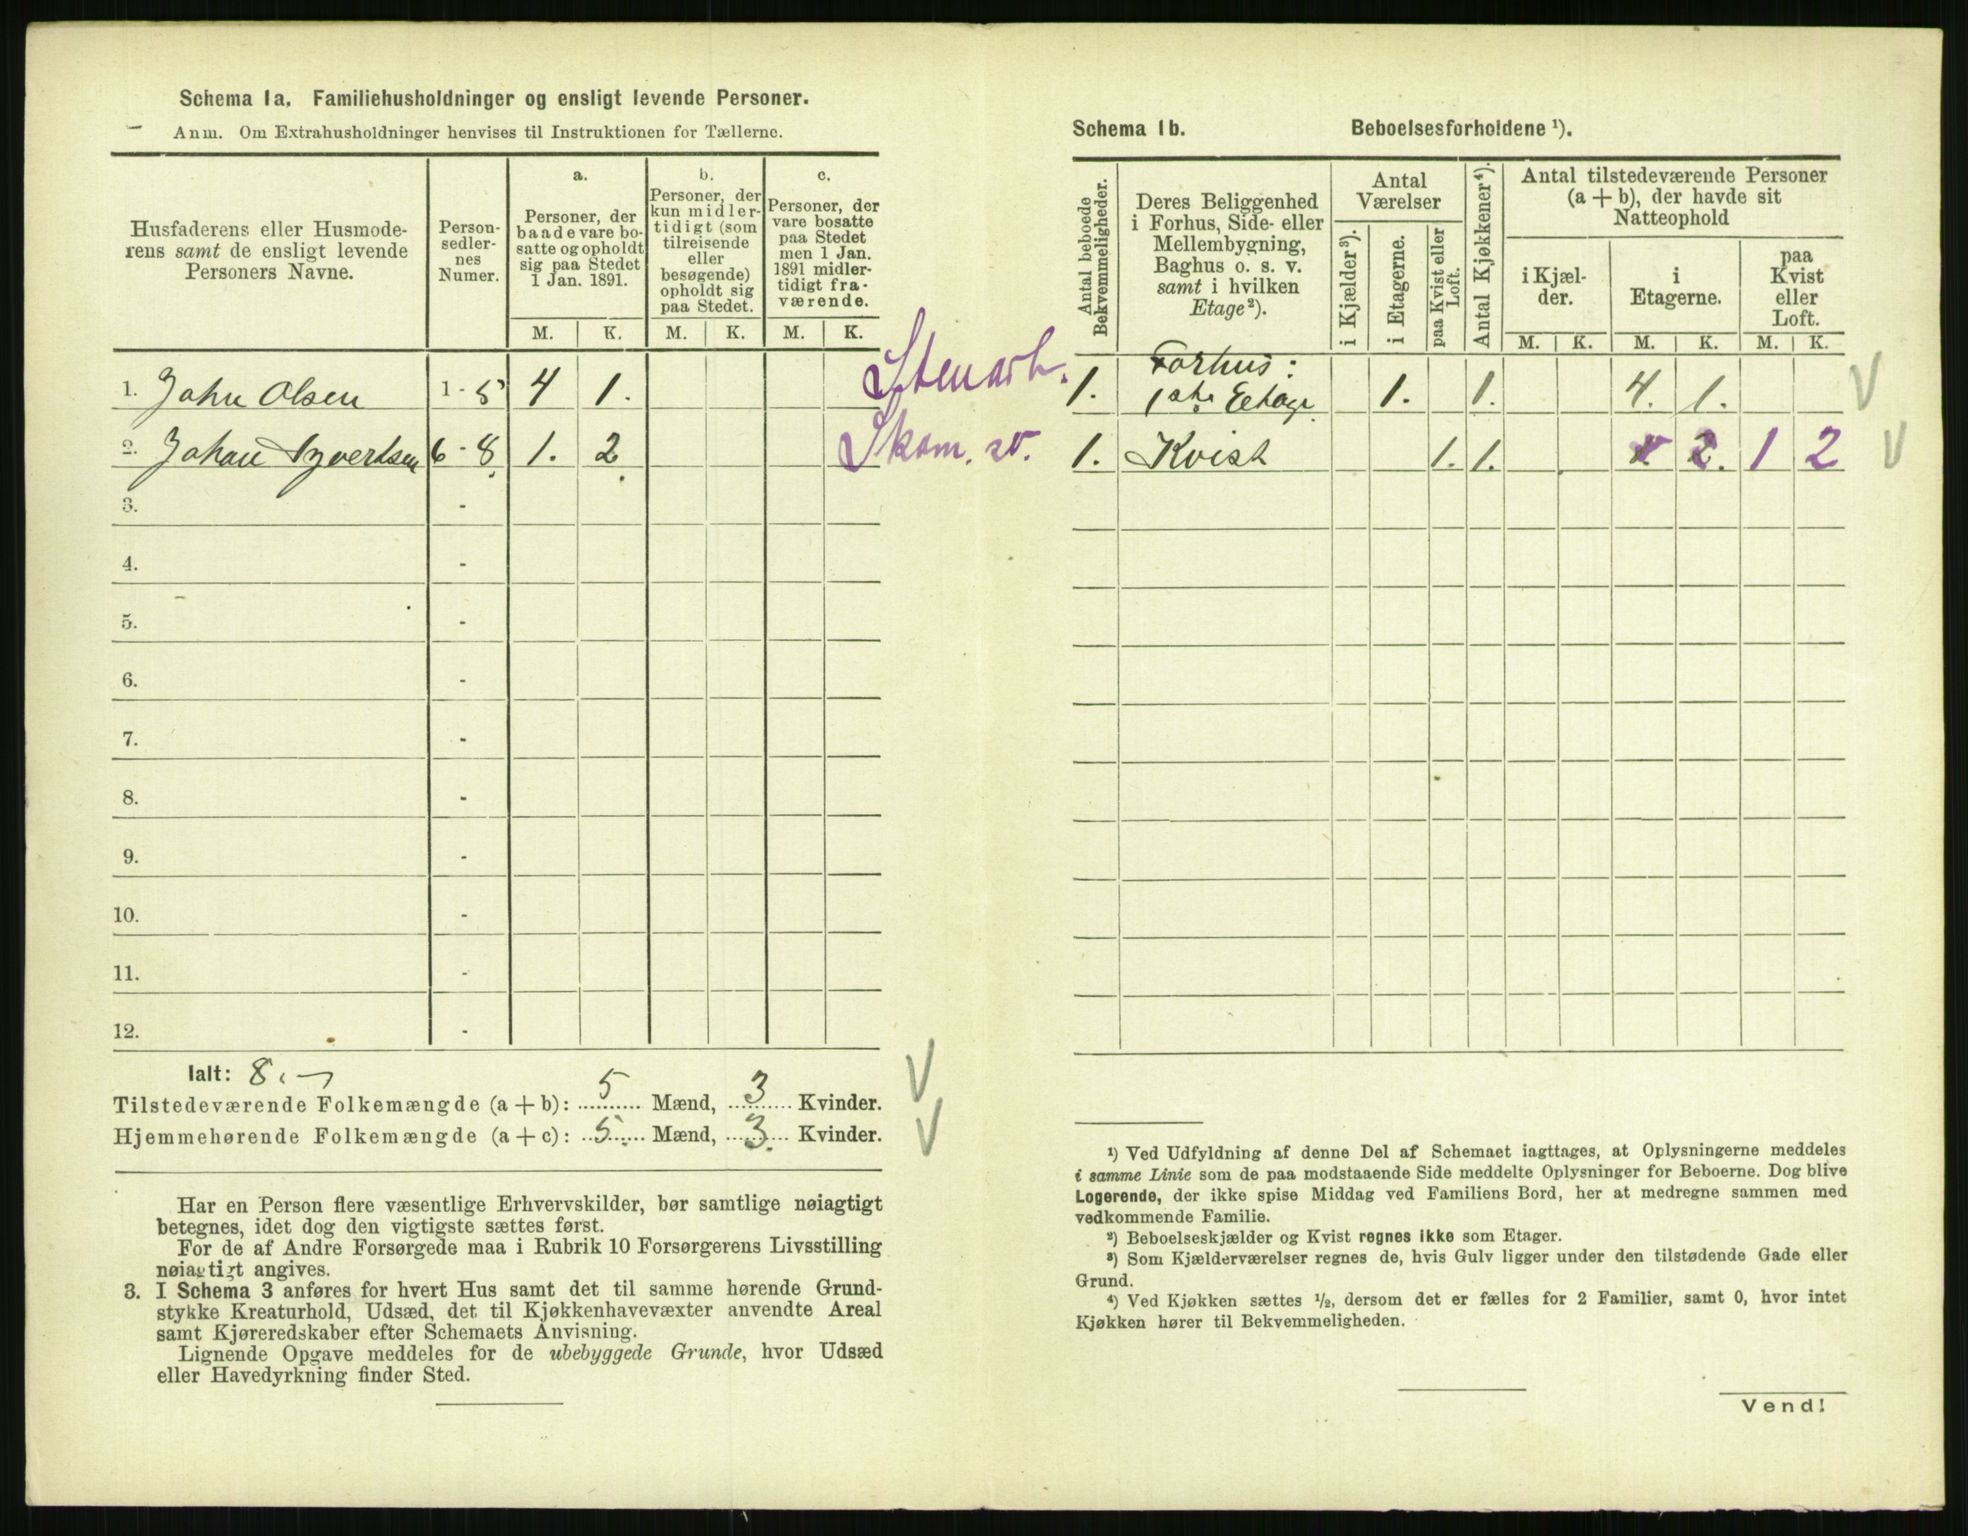 Schema 1a. Familiehusholdninger og ensligt levende Personer.
Anm. Om Extrahusholdninger henvises til Instruktionen for Tællerne.
Husfaderens eller Husmode-
rens samt de ensligt levende
Personers Navne.
Person-
sedler-
nes
Numer.
a.
Personer, der
baade vare bo-
satte og opholdt
sig paa Stedet
1 Jan. 1891.
b.
Personer, der
kun midler-
tidigt (som
tilreisende
eller
besøgende)
opholdt sig
paa Stedet.
c.
Personer, der
vare bosatte
paa Stedet
men 1 Jan.
1891 midler-
tidigt fra-
værende.
M. K. M. K. M. K.
1. John Olsen 1 - 5 4 1. Stenarb.
2. Johan Syvertsen 6 - 8 1. 2. Skom. sv.
3. -
4. -
5. -
6. -
7. -
8. -
9. -
10. -
11. -
12. -
Ialt: 8.
Tilstedeværende Folkemængde (a + b): 5 Mænd, 3 Kvinder.
Hjemmehørende Folkemængde (a + c): 5. Mænd, 3. Kvinder.
Har en Person flere væsentlige Erhvervskilder, bør samtlige nøiagtigt
betegnes, idet dog den vigtigste sættes først.
For de af Andre Forsørgede maa i Rubrik 10 Forsørgerens Livsstilling
nøiagtigt angives.
3. I Schema 3 anføres for hvert Hus samt det til samme hørende Grund-
stykke Kreaturhold, Udsæd, det til Kjøkkenhavevæxter anvendte Areal
samt Kjøreredskaber efter Schemaets Anvisning.
Lignende Opgave meddeles for de ubebyggede Grunde, hvor Udsæd
eller Havedyrkning finder Sted.
Schema 1b. Beboelsesforholdene ¹).
Antal beboede
Bekvemmeligheder.
Deres Beliggenhed
i Forhus, Side- eller
Mellembygning,
Baghus o. s. v.
samt i hvilken
Etage²).
Antal
Værelser
i Kjælder³).
i Etagerne.
paa Kvist eller
Loft.
Antal Kjøkkener⁴).
Antal tilstedeværende Personer
(a + b), der havde sit
Natteophold
i Kjæl-
der.
i
Etagerne.
paa
Kvist
eller
Loft.
M. K. M. K. M. K.
1. Forhus:
1ste Etage 1. 1. 4. 1.
1. Kvist 1. 1. 2. 1 2
¹) Ved Udfyldning af denne Del af Schemaet iagttages, at Oplysningerne meddeles
i samme Linie som de paa modstaaende Side meddelte Oplysninger for Beboerne. Dog blive
Logerende, der ikke spise Middag ved Familiens Bord, her at medregne sammen med
vedkommende Familie.
²) Beboelseskjælder og Kvist regnes ikke som Etager.
³) Som Kjælderværelser regnes de, hvis Gulv ligger under den tilstødende Gade eller
Grund.
⁴) Ved Kjøkken sættes ½, dersom det er fælles for 2 Familier, samt 0, hvor intet
Kjøkken hører til Bekvemmeligheden.
Vend!